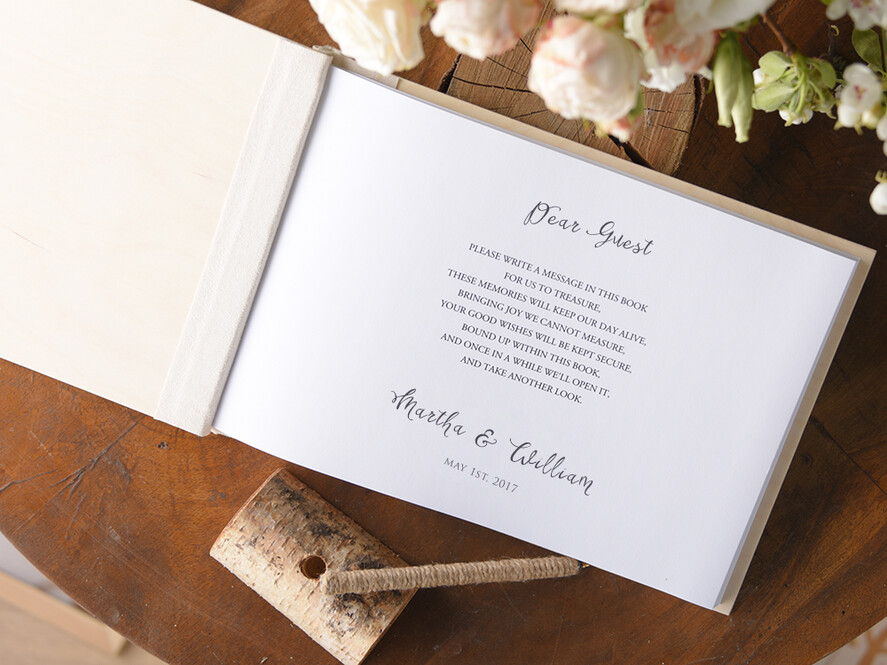 Dear Guest
PLEASE WRITE A MESSAGE IN THIS BOOK
FOR US TO TREASURE,
THESE MEMORIES WILL KEEP OUR DAY ALIVE,
BRINGING JOY WE CANNOT MEASURE,
YOUR GOOD WISHES WILL BE KEPT SECURE,
BOUND UP WITHIN THIS BOOK,
AND ONCE IN A WHILE WE'LL OPEN IT,
AND TAKE ANOTHER LOOK.
Martha & William
MAY 1ST, 2017